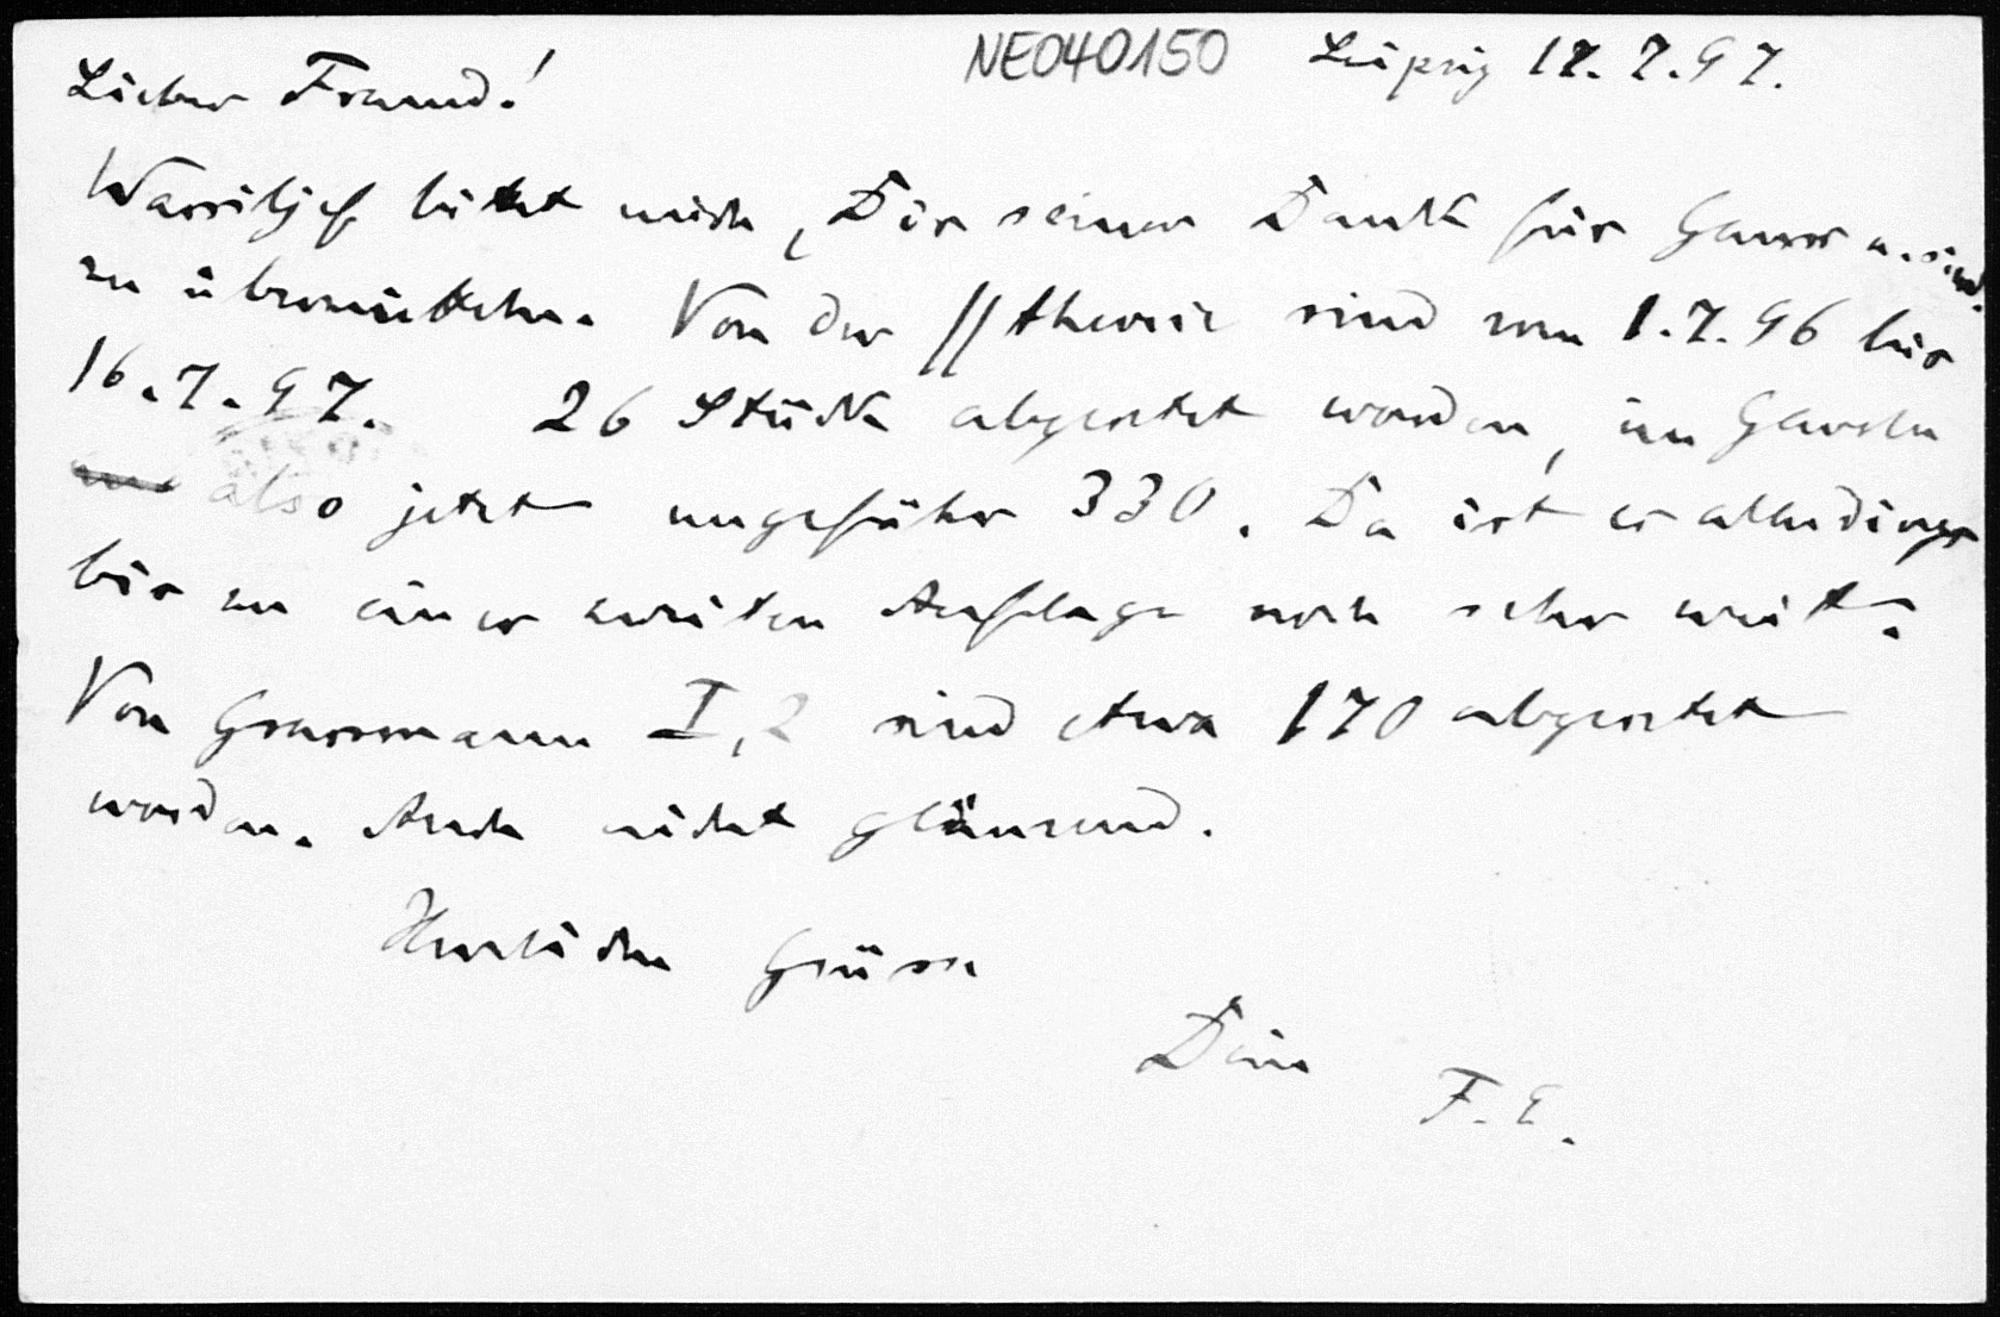 NE040150 Leipzig 17.7.97.
Lieber Freund!
Wassiljef bittet mich, Dir seinen Dank für Gauss u.
zu übermitteln. Von der //theorie sind vom 1.7.96 bis
16.7.97. 26 Stück abgesetzt worden, im Ganzen
also jetzt ungefähr 330. Da ist es allerdings
bis zu einer zweiten Auflage noch sehr weit.
Von Grassmann I,2 sind etwa 170 abgesetzt
worden. Auch nicht glänzend.
Herzliche Grüsse
Dein
F. E.